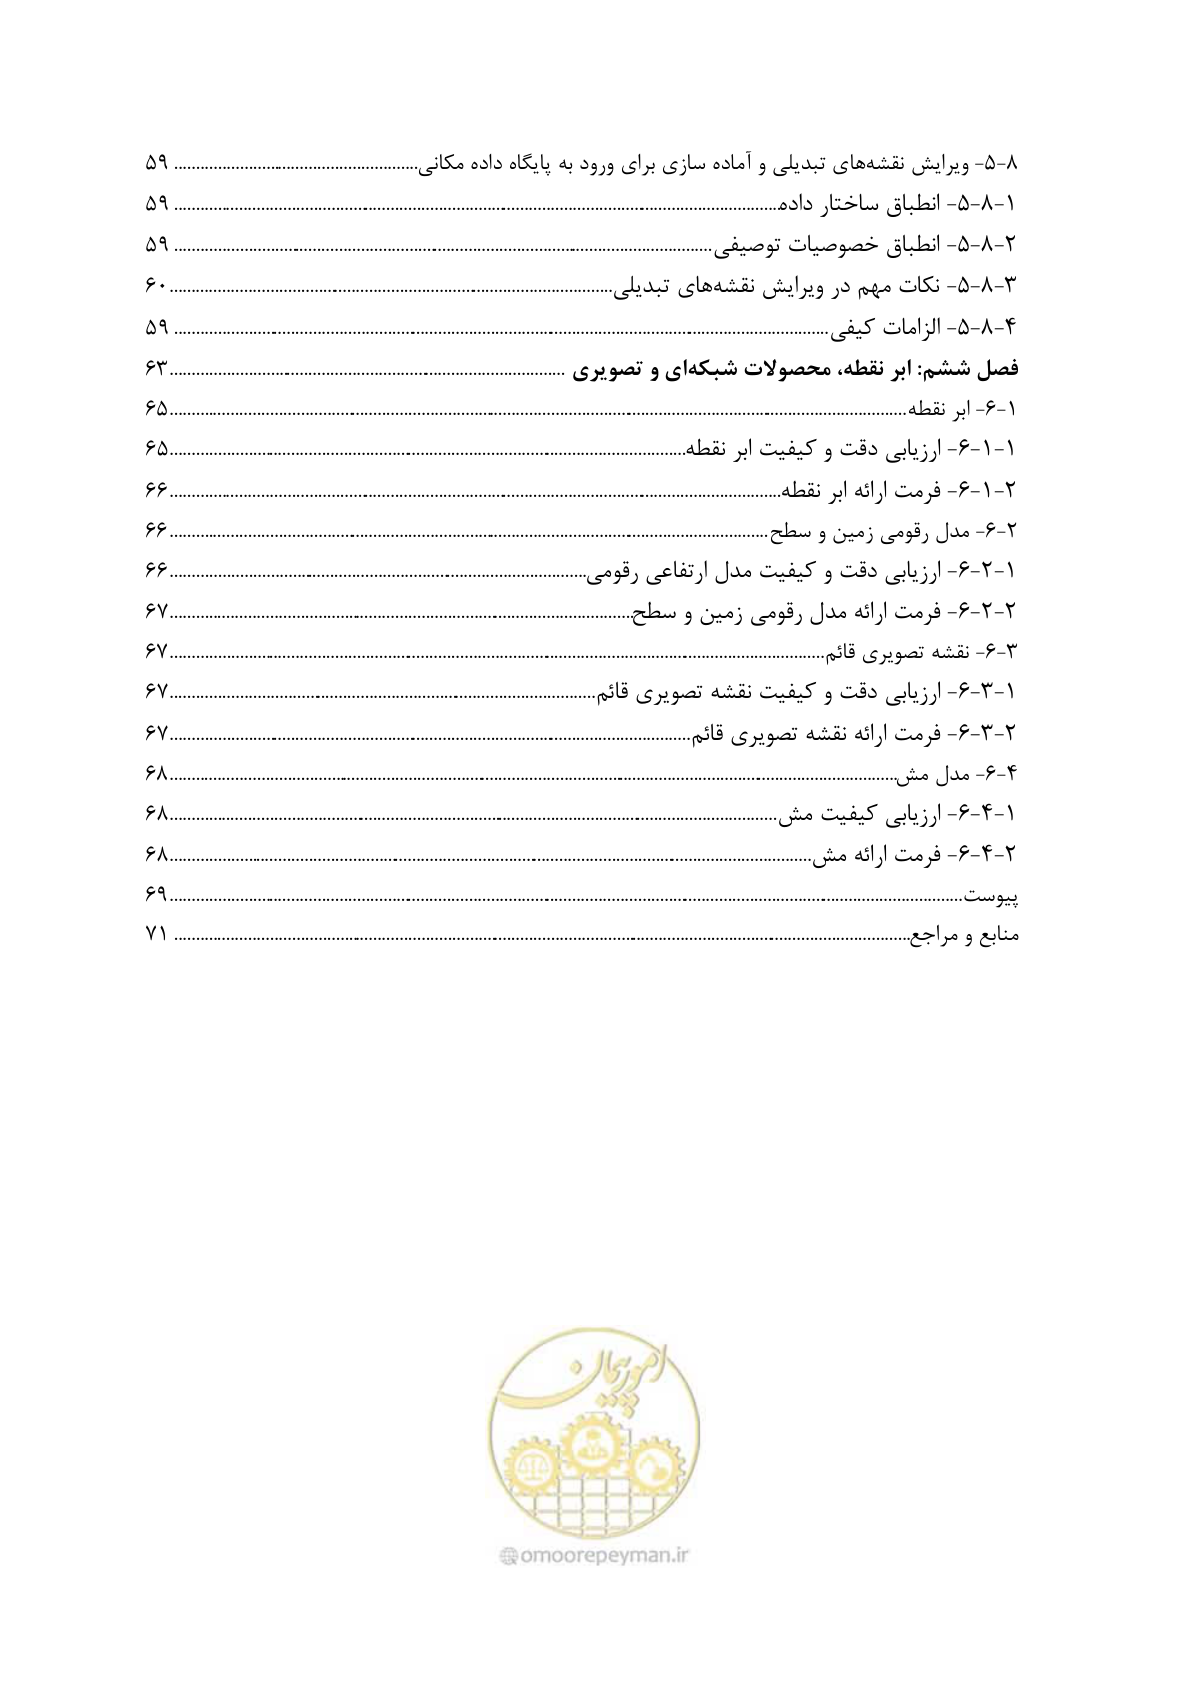 ۵-۸- ویرایش نقشه‌های تبدیلی و آماده سازی برای ورود به پایگاه داده مکانی.................... ۵۹
۵-۸-۱- انطباق ساختار داده.................... ۵۹
۵-۸-۲- انطباق خصوصیات توصیفی.................... ۵۹
۵-۸-۳- نکات مهم در ویرایش نقشه‌های تبدیلی....................۶۰
۵-۸-۴- الزامات کیفی.................... ۵۹
فصل ششم: ابر نقطه، محصولات شبکه‌ای و تصویری ....................۶۳
۶-۱- ابر نقطه....................۶۵
۶-۱-۱- ارزیابی دقت و کیفیت ابر نقطه....................۶۵
۶-۱-۲- فرمت ارائه ابر نقطه....................۶۶
۶-۲- مدل رقومی زمین و سطح....................۶۶
۶-۲-۱- ارزیابی دقت و کیفیت مدل ارتفاعی رقومی....................۶۶
۶-۲-۲- فرمت ارائه مدل رقومی زمین و سطح....................۶۷
۶-۳- نقشه تصویری قائم....................۶۷
۶-۳-۱- ارزیابی دقت و کیفیت نقشه تصویری قائم....................۶۷
۶-۳-۲- فرمت ارائه نقشه تصویری قائم....................۶۷
۶-۴- مدل مش....................۶۸
۶-۴-۱- ارزیابی کیفیت مش....................۶۸
۶-۴-۲- فرمت ارائه مش....................۶۸
پیوست....................۶۹
منابع و مراجع.................... ۷۱
امور پیمان
@omoorepeyman.ir